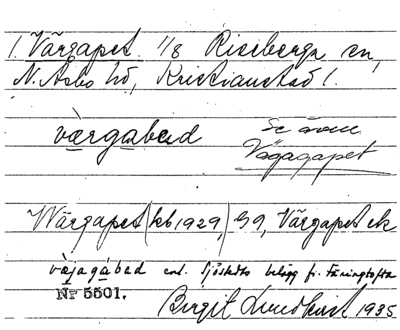 1. Värgapet 1/8 Riseberga sn,
N. Åsbo hd, Kristianstad l.
värgabad
Se även
Vägagapet
Wärgapet (kb 1929,) 39, Värgapet ek
väjagábad enl. Sjöstedts belägg fr. Färingtofta
Nr 5501.
Birgit Lundkvist 1935